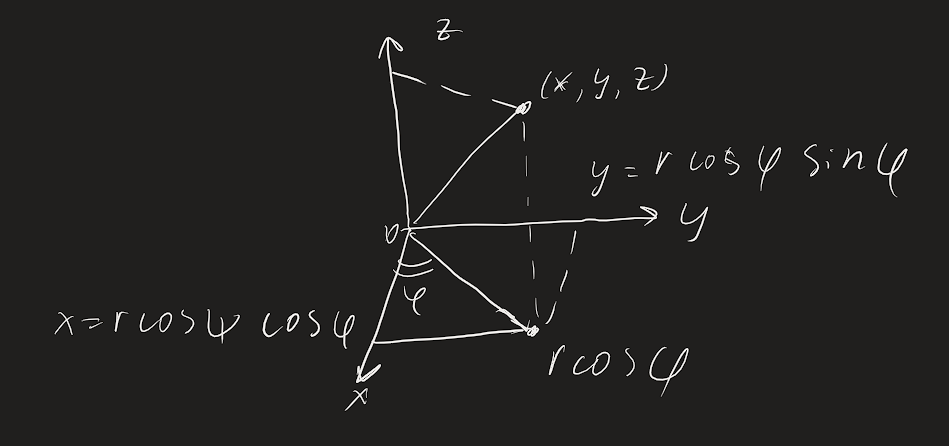 z
(x, y, z)
y = r cos φ sin φ
y
0
φ
x = r cos ψ cos φ
r cos φ
x